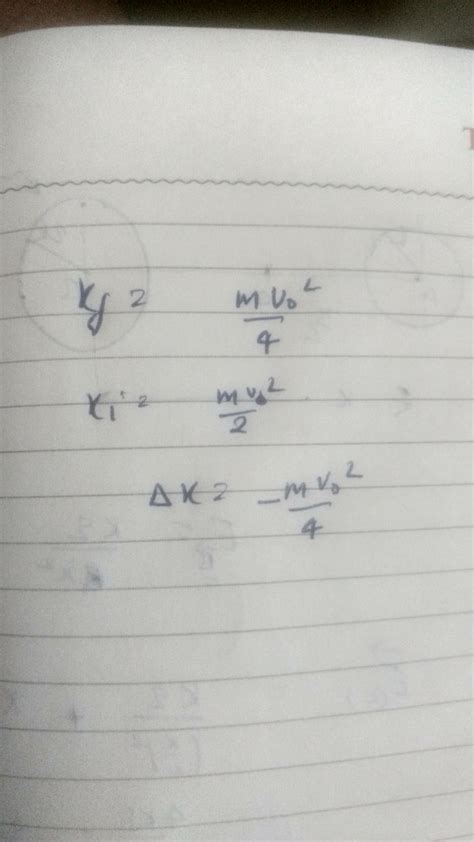 K_f = mv₀²/4
K_i = mv₀²/2
ΔK = -mv₀²/4